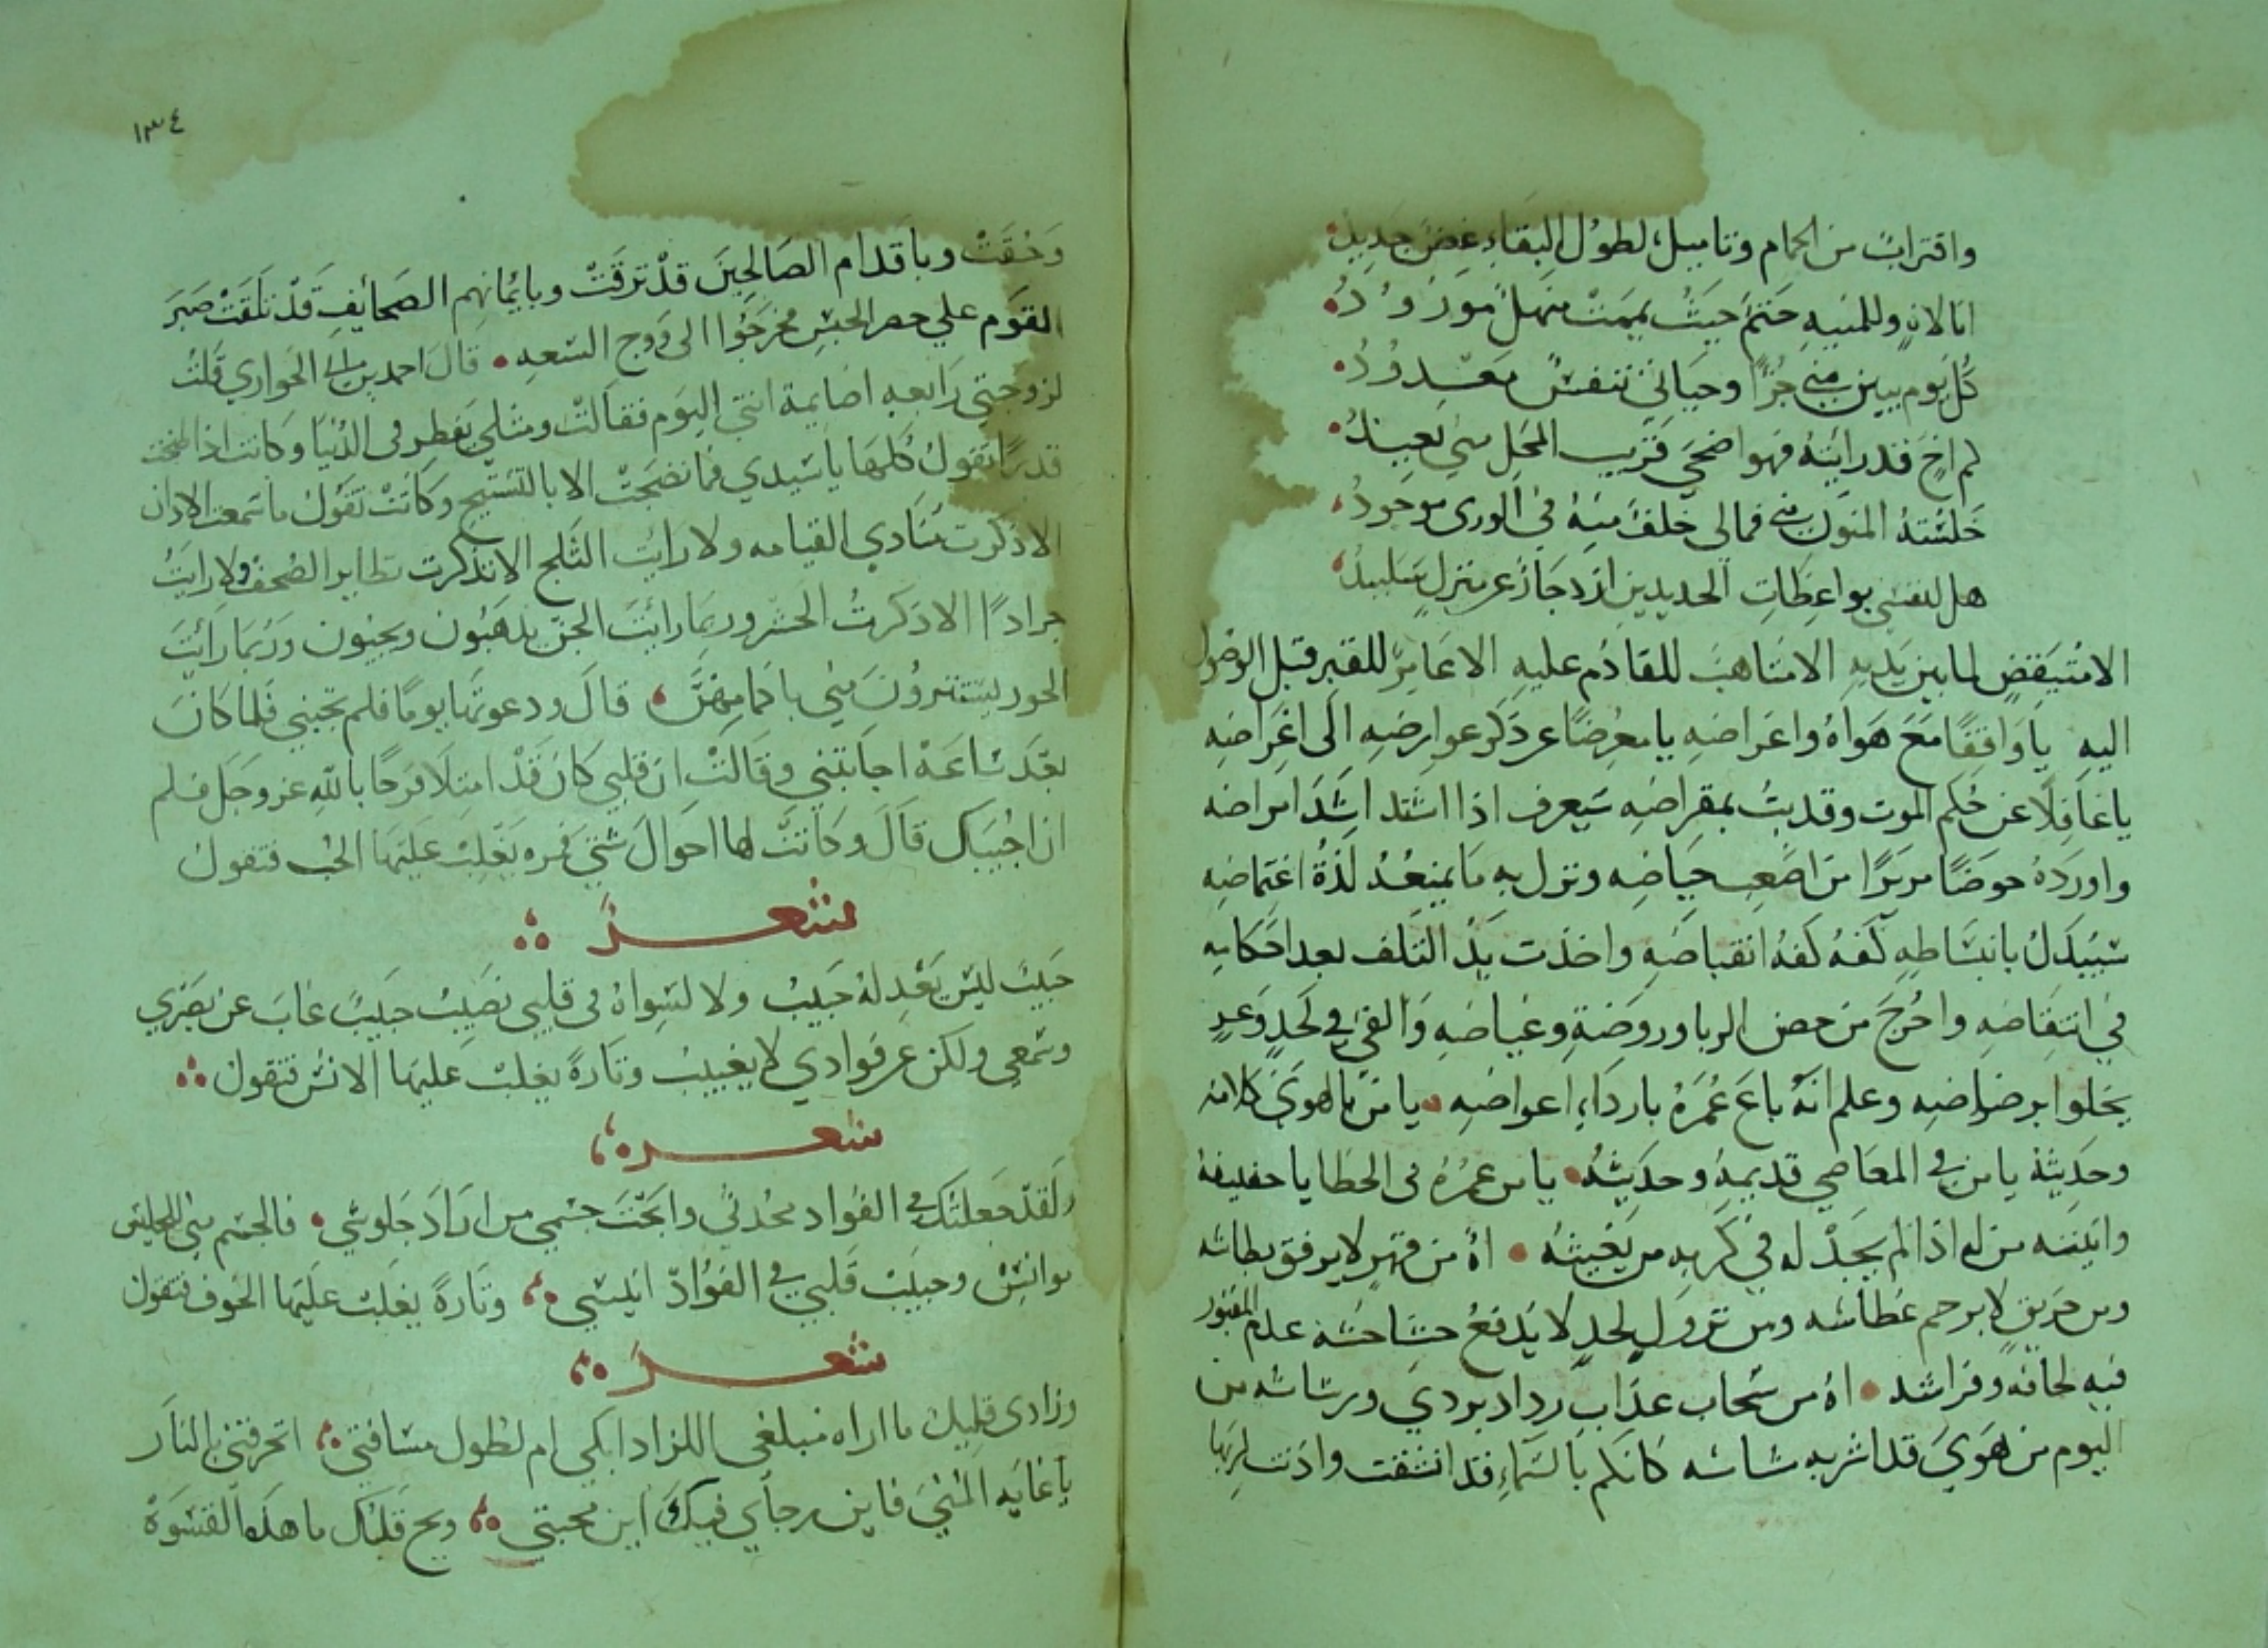 واقتراب من الحمام وتاميل لطول البقاء غض جديد
انا لاه وللمنيه حتم حيث يممت منهل مورود
كل يوم يبين مني جزا وحياتي تنفس معدود
لم اخ قد رايته فهو اضحي قريب المحل مني بعيد
خلسته المنون مني فمالي خلف منه في الوري موجود
هل لنفسي بواعظات الحديدين ازدجار عن منزل سيبيد
الامتيقض لما بين يديه الامتاهب للقادم عليه الا عامر للقبر قبل الوصول
اليه يا واقفا مع هواه واغراضه يا معرضا عن ذكر عوارضه الى اغراضه
يا غافلا عن حكم الموت وقد بت بمقراضه سيعرف اذا اشتد اشد امراضه
واورده حوضا مريرا من اصعب حياضه ونزل به ما يمنعه لذة اغتماضه
سيبدل بانبساطه كفه كفه انقباضه واخذت يد التلف بعد احكامه
في انتقاضه واخرج من خضر الربا وروضة وغياضه والقي في لحد وعر
يخلوا برضراضه وعلم انه باع عمره باردا اعواضه يا من بالهوي كلامه
وحديثه يا من في المعاصي قديمه وحديثه يا من عمره في الخطايا خفيفه
واثيثه من له اذا لم يجد له في كربه من يغيثه اه من قهر لا يرفق بطاشه
ومن حريق لا يرحم عطاشه ومن نزول لحد لا يدفع حشاحشه علم المقبور
فيه لحافه وفراشه اه من سحاب عذاب رداد يردي ورشاشه من
اليوم من هوي قد اشربه مشاشه كانكم بالسماء قد انشقت واذنت لربها
١٣٤
وحقت وباقدام الصالحين قد ترقت وبايمانهم الصحايف قد تلقت صبر
القوم على حصر الحبس فخرجوا الى روح السعه قال احمد بن ابي الحواري قلت
لزوجتي رابعه اصايمة انتي اليوم فقالت ومثلي يفطر في الدنيا وكانت اذا طبخت
قدرا تقول كلها يا سيدي فما نضجت الا بالتسبيح وكانت تقول ما سمعت الاذان
الا ذكرت منادي القيامه ولا رايت الثلج الا تذكرت تطاير الصحف ولا رايت
جرادا الا ذكرت الحشر وربما رايت الجن يذهبون ويجيون وربما رايت
الحور يستترون مني باكمامهن قال ودعوتها يوما فلم تجبني فلما كان
بعد ساعة اجابتني وقالت ان قلبي كان قد امتلا فرحا بالله عز وجل فلم
ان اجيبك قال وكانت لها احوال شتي فمره يغلب عليها الحب فتقول
شعر
حبيب ليس يعدله حبيب ولا لسواه في قلبي نصيب حبيب غاب عن بصري
وسمعي ولكن عن فوادي لا يغيب وتارة يغلب عليها الانس فتقول
شعر
ولقد جعلتك في الفواد محدثي وابحت جسمي من اراد جلوسي فالجسم مني للجليس
موانس وحبيب قلبي في الفؤاد انيسي وتارة يغلب عليها الخوف فتقول
شعر
وزادى قليل ما اراه مبلغي اللزاد ابكي ام لطول مسافتي اتحرقني بالنار
يا غايه المني فاين رجاي فيك اين محبتي ويح قلبك ما هذه القسوة